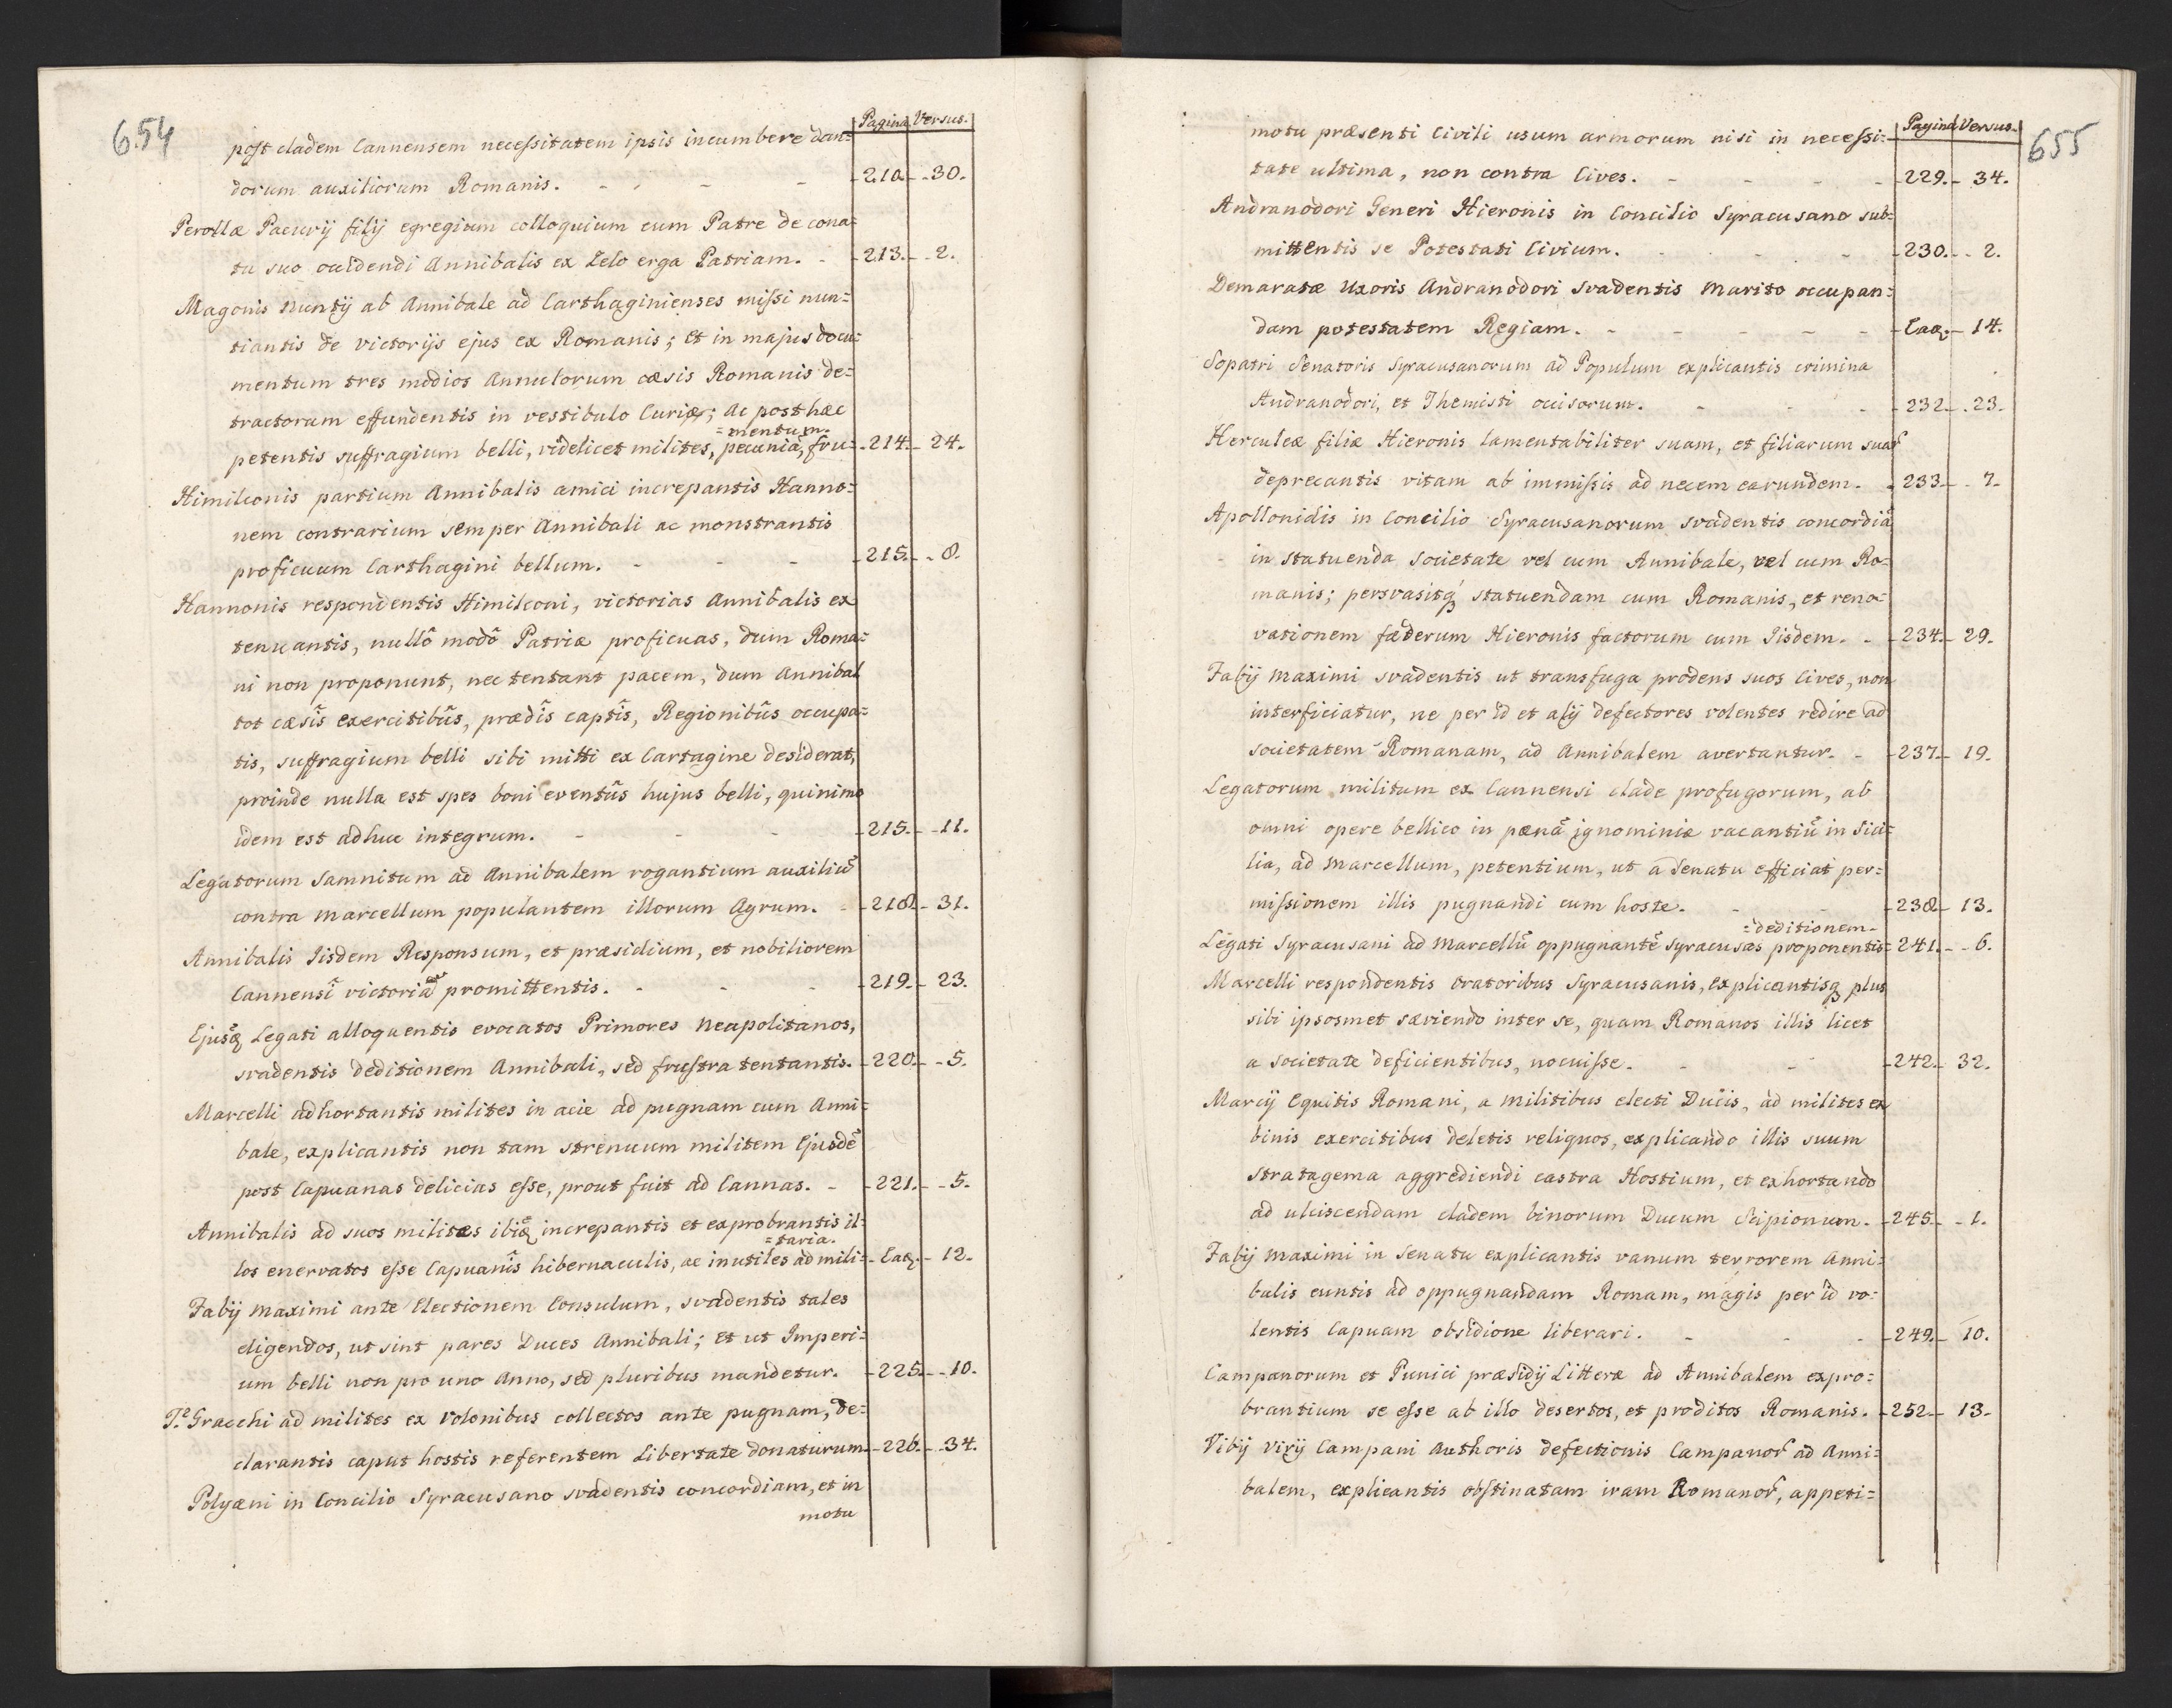 654
Pagina Versus.
post cladem Cannensem necessitatem ipsis incumbere dan=
dorum auxiliorum Romanis. - - - - 210. - 30.
Perollæ Pacuvij filij egregium colloquium cum Patre de cona=
tu suo occidendi Annibalis ex Zelo erga Patriam. - 213. - 2.
Magonis Nuntij ab Annibale ad Carthaginienses missi nun=
tiantis de victorijs ejus ex Romanis; et in majus docu=
mentum tres modios Annulorum cæsis Romanis de=
tractorum effundentis in vestibulo Curiæ; ac post hæc
=mentum.
petentis suffragium belli, videlicet milites, pecuniã, fru= 214. - 24.
Himilconis partium Annibalis amici increpantis Hanno=
nem contrarium semper Annibali ac monstrantis
proficuum Carthagini bellum. - - - 215. - 8.
Hannonis respondentis Himilconi, victorias Annibalis ex
tenuantis, nullô modô Patriæ proficuas, dum Roma=
ni non proponunt, nec tentant pacem, dum Annibal
tot cæsîs exercitibûs, prædîs captîs, Regionibûs occupa=
tis, suffragium belli sibi mitti ex Cartagine desiderat,
proinde nulla est spes boni eventûs hujus belli, quinimo
idem est adhuc integrum. - - - 215. - 11.
Legatorum Samnitum ad Annibalem rogantium auxiliũ
contra Marcellum populantem illorum Agrum. - 218. - 31.
Annibalis Iisdem Responsum, et præsidium, et nobiliorem
Cannensî victoriâ promittentis. - - - 219. - 23.
Ejusq́ Legati alloquentis evocatos Primores Neapolitanos,
svadentis deditionem Annibali, sed frustra tentantis. - 220. - 5.
Marcelli adhortantis milites in acie ad pugnam cum Anni=
bale, explicantis non tam strenuum militem Ejusdẽ
post Capuanas delicias esse, prout fuit ad Cannas. - 221. - 5.
Annibalis ad suos milites ibiq́ increpantis et exprobrantis il=
=taria.
los enervatos esse Capuanîs hibernaculis, ac inutiles ad mili= - Eaq. - 12.
Fabij Maximi ante Electionem Consulum, svadentis tales
eligendos, ut sint pares Duces Annibali; et ut Imperi=
um belli non pro uno Anno, sed pluribus mandetur. - 225. - 10.
T. Gracchi ad milites ex Volonibus collectos ante pugnam, de=
clarantis caput hostis referentem Libertate donaturum. - 226. - 34.
Polyæni in Concilio Syracusano svadentis concordiam, et in
motu
655
Pagina Versus.
motu præsenti Civili usum armorum nisi in necessi=
tate ultima, non contra Cives. - - - - 229. - 34.
Andranodori Generi Hieronis in Concilio Syracusano sub=
mittentis se Potestati Civium. - - - 230. - 2.
Demaratæ Uxoris Andranodori svadentis Marito occupan=
dam potestatem Regiam. - - - - - Eaq. - 14.
Sopatri Senatoris Syracusanorum ad Populum explicantis crimina
Andranodori, et Themisti occisorum. - - - 232. - 23.
Herculeæ filiæ Hieronis lamentabiliter suam, et filiarum suar̃
deprecantis vitam ab immissis ad necem earundem. - 233. - 7.
Apollonidis in Concilio Syracusanorum svadentis concordiã
in statuenda societate vel cum Annibale, vel cum Ro=
manis; persvasitq́ statuendam cum Romanis, et reno=
vationem fæderum Hieronis factorum cum Iisdem. - 234. - 29.
Fabij Maximi svadentis ut transfuga prodens suos Cives, non
interficiatur, ne per id et alij defectores volentes redire ad
societatem Romanam, ad Annibalem avertantur. - 237. - 19.
Legatorum militum ex Cannensi clade profugorum, ab
omni opere bellico in pænã ignominiæ vacantiũ in Sici=
lia, ad Marcellum, petentium, ut a Senatu efficiat per=
missionem illis pugnandi cum hoste. - - 238. - 13.
=deditionem.
Legati Syracusani ad Marcellũ oppugnantẽ Syracusas proponentis= 241. - 6.
Marcelli respondentis Oratoribus Syracusanis, explicantisq́ plus
sibi ipsosmet sæviendo inter se, quam Romanos illis licet
a societate deficientibus, nocuisse. - - 242. - 32.
Marcij Equitis Romani, a militibus electi Ducis, ad milites ex
binis exercitibus deletis reliquos, explicando illis suum
stratagema aggrediendi castra Hostium, et exhortando
ad ulciscendam cladem binorum Ducum Scipionum. - 245. - 1.
Fabij Maximi in Senatu explicantis vanum terrorem Anni=
balis euntis ad oppugnandam Romam, magis per id vo=
lentis Capuam obsidione liberari. - - - 249. - 10.
Campanorum et Punici præsidij Litteræ ad Annibalem expro=
brantium se esse ab illo desertos, et proditos Romanis. - 252. - 13.
Vibij Virij Campani Authoris defectionis Campanor̃ ad Anni=
balem, explicantis obstinatam iram Romanor̃, appeti=